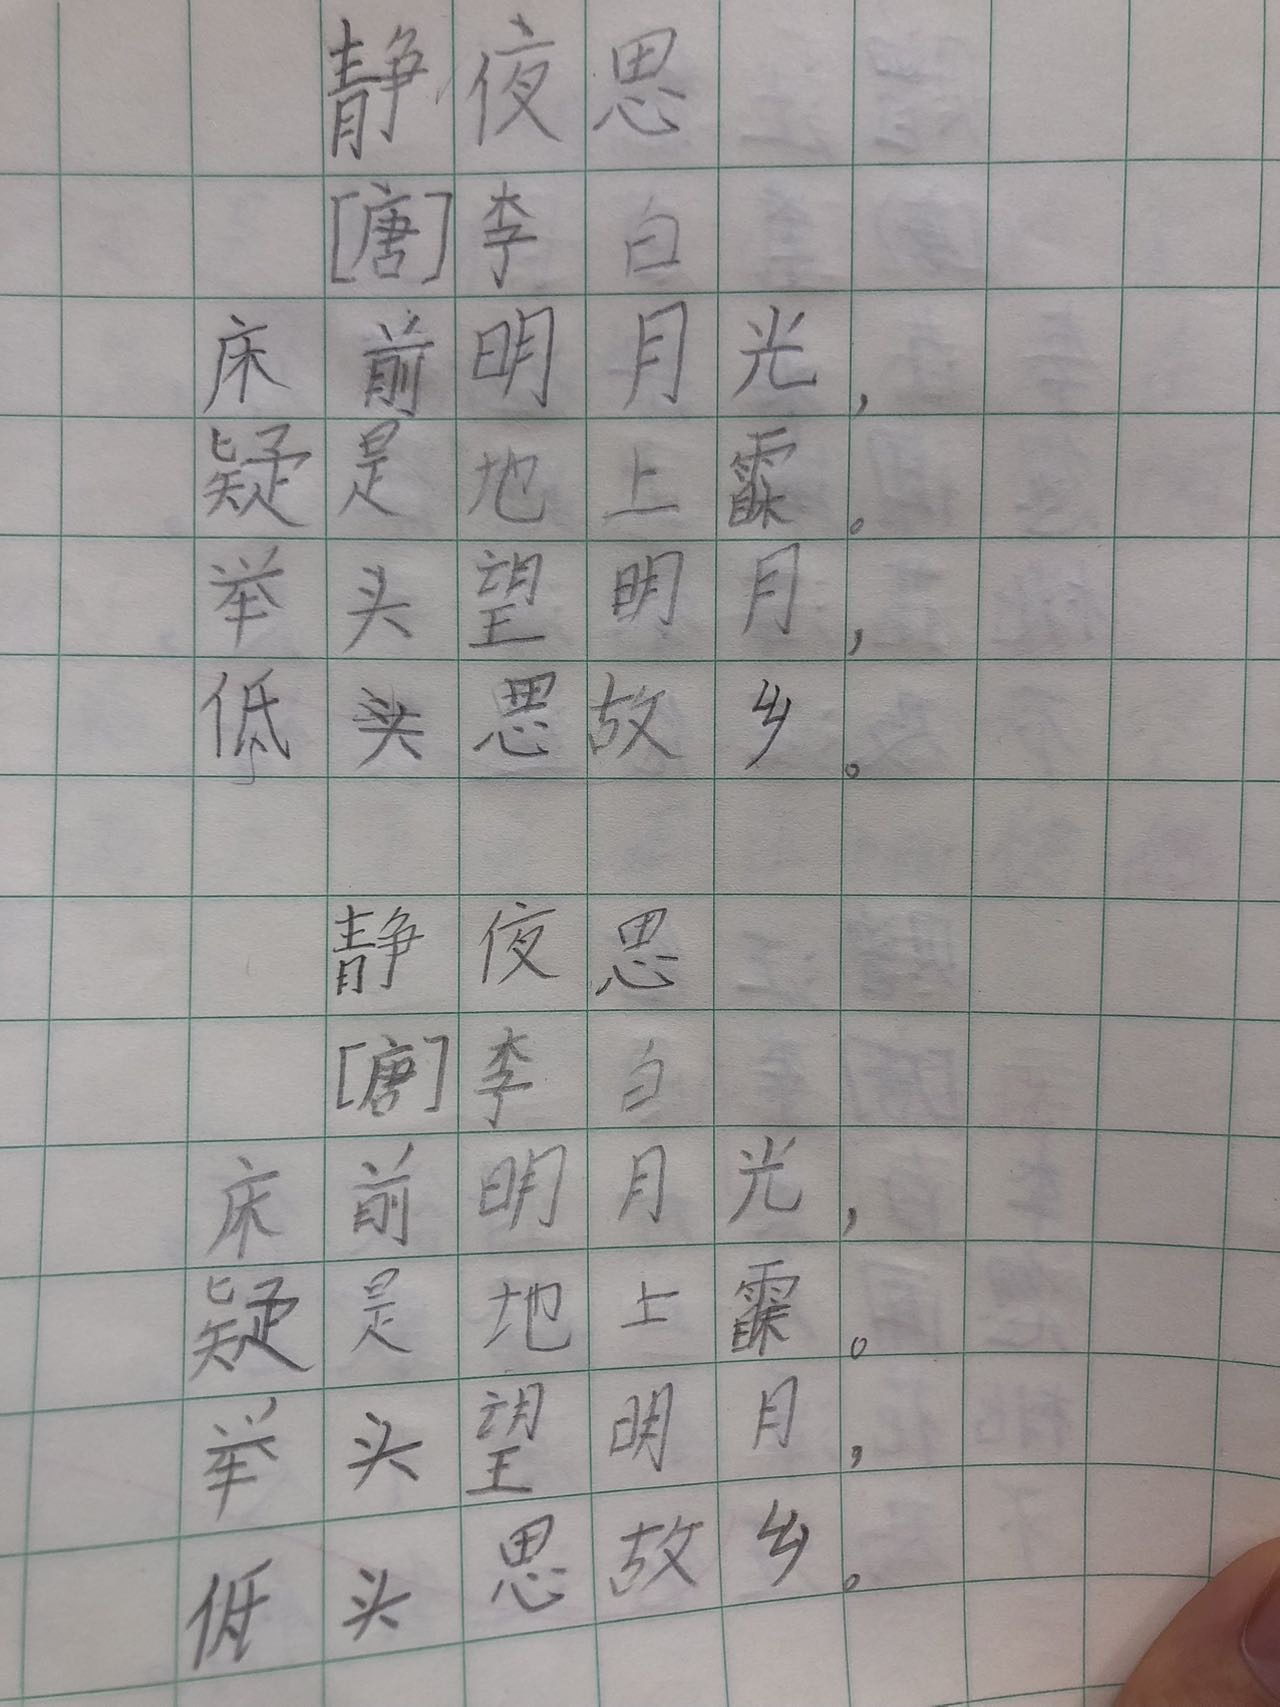 静夜思
[唐]李白
床前明月光，
疑是地上霜。
举头望明月，
低头思故乡。
静夜思
[唐]李白
床前明月光，
疑是地上霜。
举头望明月，
低头思故乡。